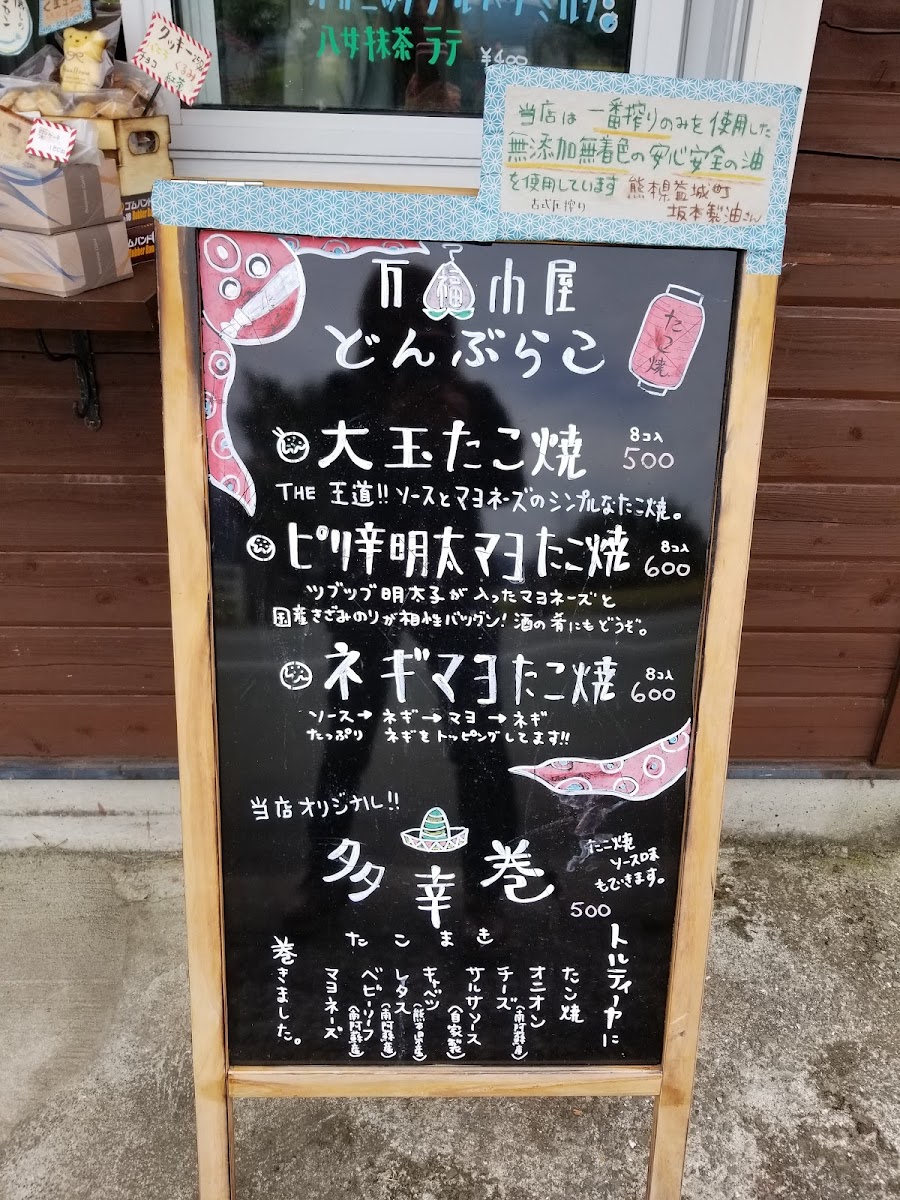 八女抹茶ラテ ¥400
クッキー
チョコ
くるみ
紅茶
当店は一番搾りのみを使用した
無添加無着色の安心安全の油
を使用しています 熊本県益城町
古式圧搾り 坂本製油さん
万福小屋
どんぶらこ
たこ焼
大玉たこ焼 8コ入 500
THE 王道!! ソースとマヨネーズのシンプルなたこ焼。
ピリ辛明太マヨたこ焼 8コ入 600
ツブツブ明太子が入ったマヨネーズと
国産きざみのりが相性バツグン!酒の肴にもどうぞ。
ネギマヨたこ焼 8コ入 600
ソース→ネギ→マヨ→ネギ
たっぷりネギをトッピングしてます!!
当店オリジナル!!
多幸巻
たこまき
たこ焼
ソース味
もできます。
500
トルティーヤに
たこ焼
オニオン
チーズ(南阿蘇産)
サルサソース(自家製)
キャベツ(熊本県産)
レタス(南阿蘇産)
ベビーリーフ(南阿蘇産)
マヨネーズ
巻きました。